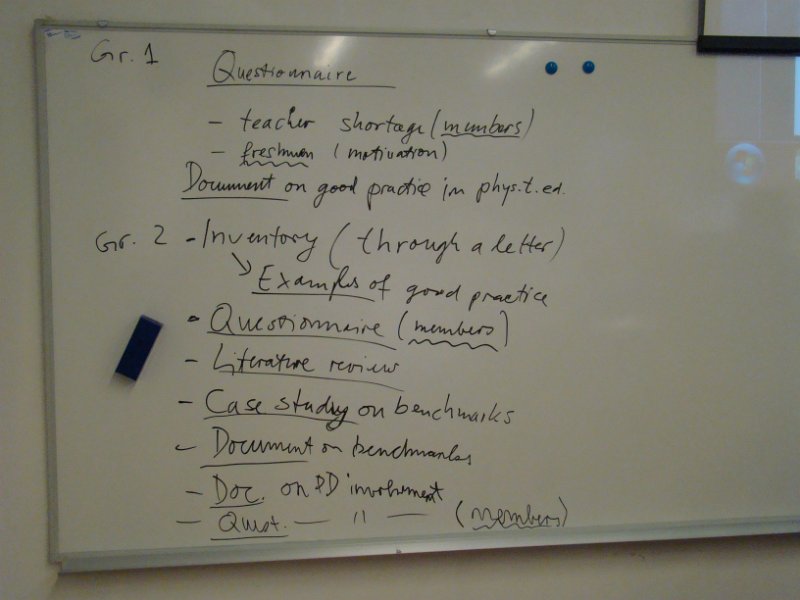 Gr. 1
Questionnaire
- teacher shortage (members)
- freshmen (motivation)
Document on good practice in phys.t.ed.
Gr. 2 - Inventory (through a letter)
↘ Examples of good practice
- Questionnaire (members)
- Literature review
- Case study on benchmarks
- Document on benchmarks
- Doc. on PD involvement
- Quest. — " — (members)